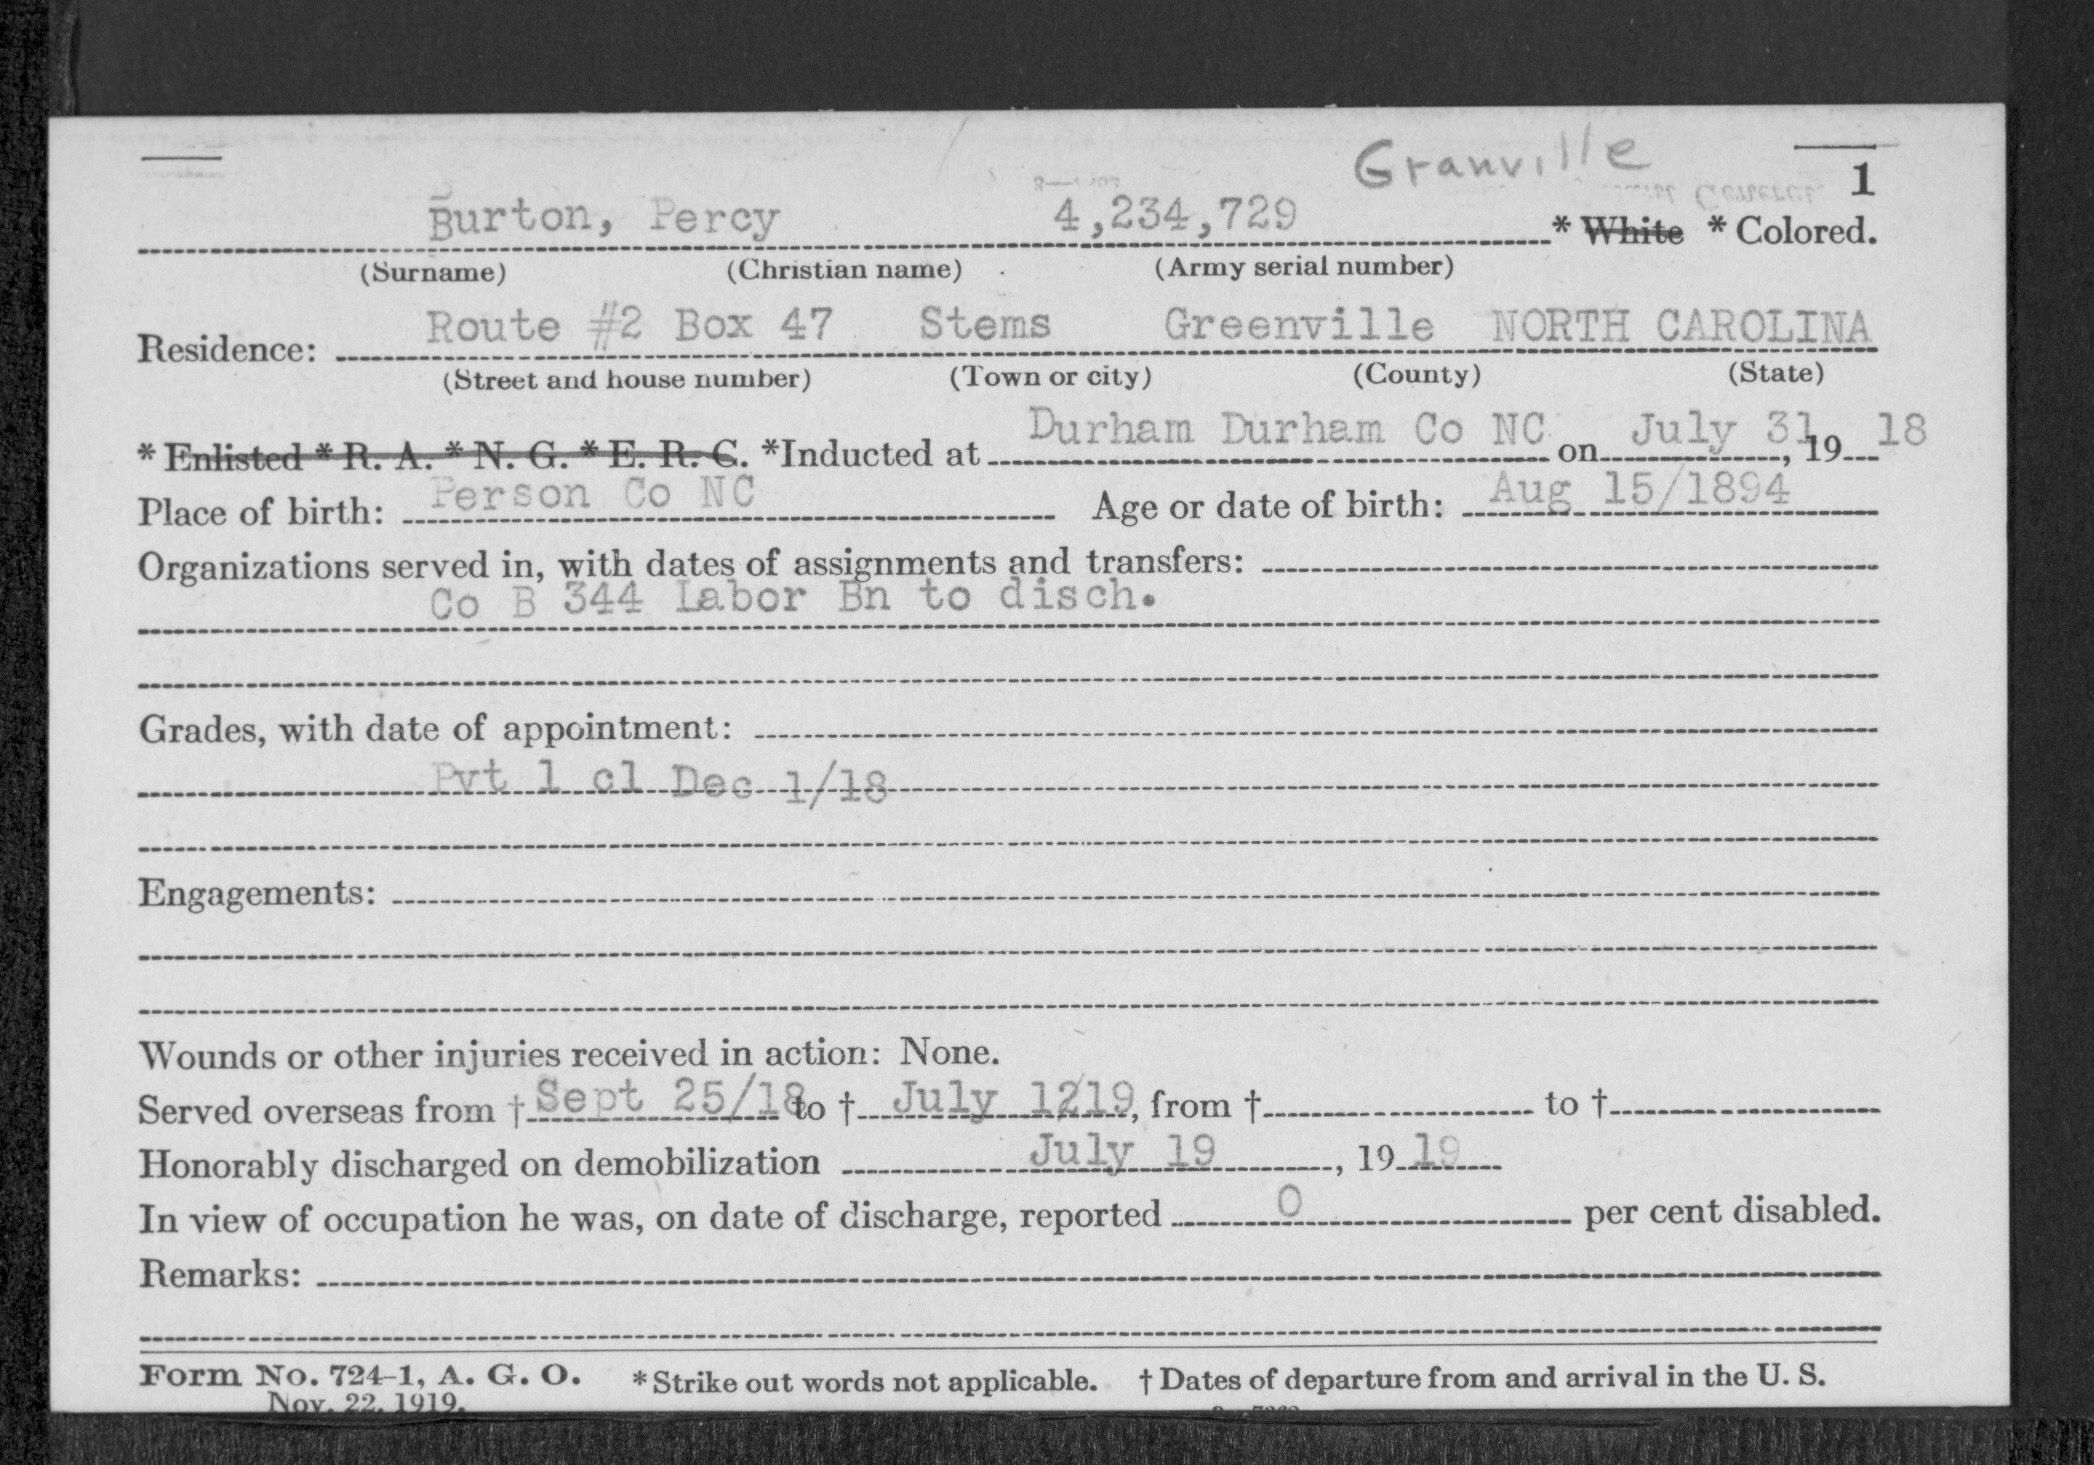 Granville
1
Burton, Percy 4,234,729 * White * Colored.
(Surname) (Christian name) (Army serial number)
Residence: Route #2 Box 47 Stems Greenville NORTH CAROLINA
(Street and house number) (Town or city) (County) (State)
* Enlisted * R. A. * N. G. * E. R. C. *Inducted at Durham Durham Co NC on July 31, 19 18
Place of birth: Person Co NC Age or date of birth: Aug 15/1894
Organizations served in, with dates of assignments and transfers:
Co B 344 Labor Bn to disch.
Grades, with date of appointment:
Pvt 1 cl Dec 1/18
Engagements:
Wounds or other injuries received in action: None.
Served overseas from † Sept 25/18 to † July 12/19, from † to †
Honorably discharged on demobilization July 19, 19 19
In view of occupation he was, on date of discharge, reported 0 per cent disabled.
Remarks:
Form No. 724-1, A. G. O. * Strike out words not applicable. † Dates of departure from and arrival in the U. S.
Nov. 22, 1919.